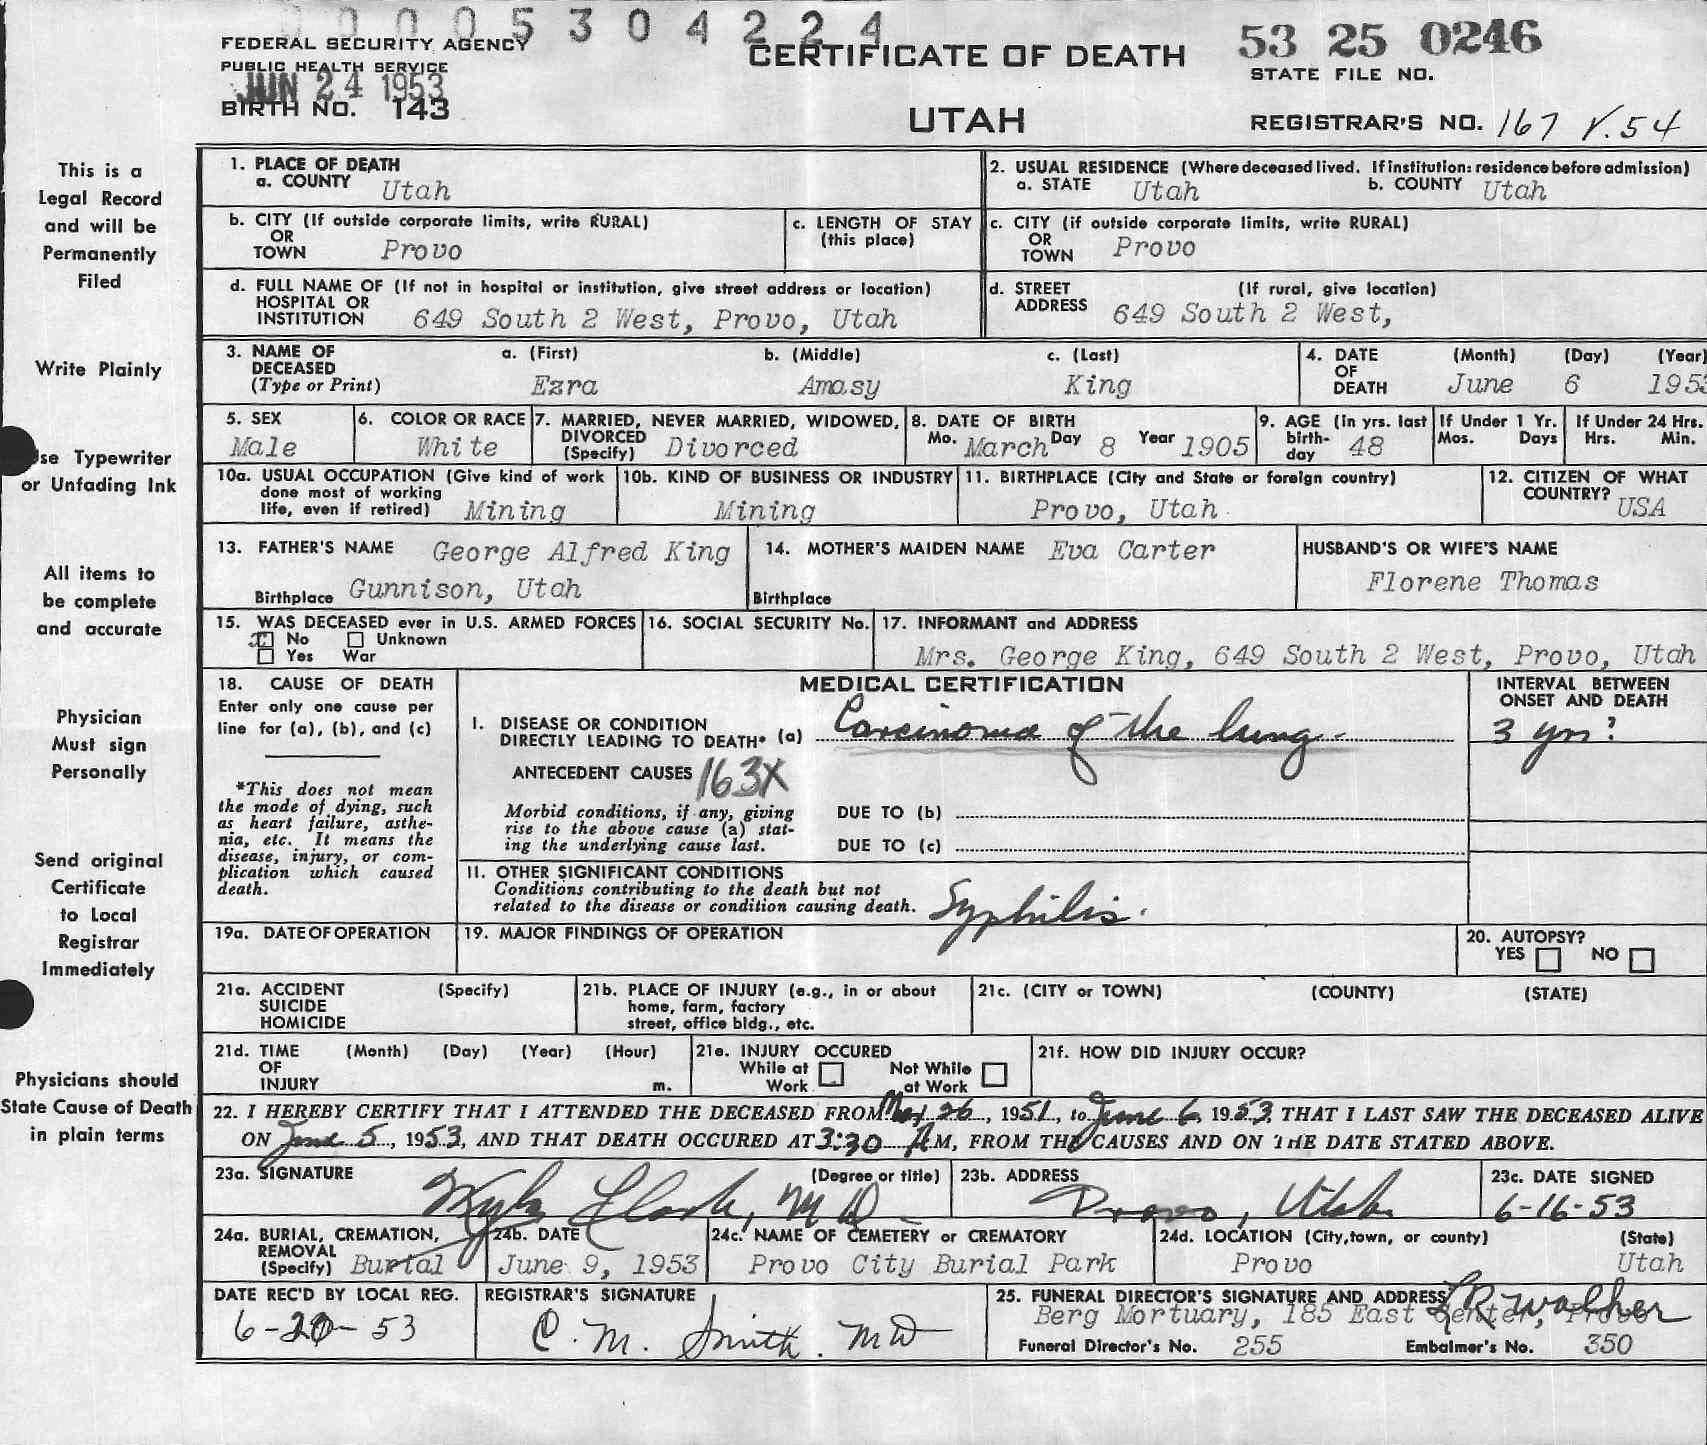 0 0 0 0 5 3 0 4 2 2 4
FEDERAL SECURITY AGENCY
PUBLIC HEALTH SERVICE
JUN 24 1953
BIRTH NO. 143
CERTIFICATE OF DEATH
UTAH
53 25 0246
STATE FILE NO.
REGISTRAR'S NO. 167 V.54
This is a
Legal Record
and will be
Permanently
Filed
Write Plainly
se Typewriter
or Unfading Ink
All items to
be complete
and accurate
Physician
Must sign
Personally
Send original
Certificate
to Local
Registrar
Immediately
Physicians should
State Cause of Death
in plain terms
1. PLACE OF DEATH
a. COUNTY Utah
2. USUAL RESIDENCE (Where deceased lived. If institution: residence before admission)
a. STATE Utah b. COUNTY Utah
b. CITY (If outside corporate limits, write RURAL)
OR
TOWN Provo
c. LENGTH OF STAY
(this place)
c. CITY (if outside corporate limits, write RURAL)
OR
TOWN Provo
d. FULL NAME OF (If not in hospital or institution, give street address or location)
HOSPITAL OR
INSTITUTION 649 South 2 West, Provo, Utah
d. STREET (If rural, give location)
ADDRESS 649 South 2 West,
3. NAME OF a. (First) b. (Middle) c. (Last)
DECEASED
(Type or Print) Ezra Amasy King
4. DATE (Month) (Day) (Year)
OF
DEATH June 6 1953
5. SEX
Male
6. COLOR OR RACE
White
7. MARRIED, NEVER MARRIED, WIDOWED,
DIVORCED
(Specify) Divorced
8. DATE OF BIRTH
Mo. March Day 8 Year 1905
9. AGE (In yrs. last
birth-
day 48
If Under 1 Yr.
Mos. Days
If Under 24 Hrs.
Hrs. Min.
10a. USUAL OCCUPATION (Give kind of work
done most of working
life, even if retired) Mining
10b. KIND OF BUSINESS OR INDUSTRY
Mining
11. BIRTHPLACE (City and State or foreign country)
Provo, Utah
12. CITIZEN OF WHAT
COUNTRY? USA
13. FATHER'S NAME George Alfred King
Birthplace Gunnison, Utah
14. MOTHER'S MAIDEN NAME Eva Carter
Birthplace
HUSBAND'S OR WIFE'S NAME
Florene Thomas
15. WAS DECEASED ever in U.S. ARMED FORCES
x No Unknown
Yes War
16. SOCIAL SECURITY No.
17. INFORMANT and ADDRESS
Mrs. George King, 649 South 2 West, Provo, Utah
18. CAUSE OF DEATH
Enter only one cause per
line for (a), (b), and (c)
*This does not mean
the mode of dying, such
as heart failure, asthe-
nia, etc. It means the
disease, injury, or com-
plication which caused
death.
MEDICAL CERTIFICATION
I. DISEASE OR CONDITION
DIRECTLY LEADING TO DEATH* (a) Carcinoma of the lung
ANTECEDENT CAUSES 163X
Morbid conditions, if any, giving
rise to the above cause (a) stat-
ing the underlying cause last.
DUE TO (b)
DUE TO (c)
INTERVAL BETWEEN
ONSET AND DEATH
3 yrs?
11. OTHER SIGNIFICANT CONDITIONS
Conditions contributing to the death but not
related to the disease or condition causing death. Syphilis.
19a. DATE OF OPERATION
19. MAJOR FINDINGS OF OPERATION
20. AUTOPSY?
YES NO
21a. ACCIDENT (Specify)
SUICIDE
HOMICIDE
21b. PLACE OF INJURY (e.g., in or about
home, farm, factory
street, office bldg., etc.
21c. (CITY or TOWN) (COUNTY) (STATE)
21d. TIME (Month) (Day) (Year) (Hour)
OF
INJURY m.
21e. INJURY OCCURED
While at Not While
Work at Work
21f. HOW DID INJURY OCCUR?
22. I HEREBY CERTIFY THAT I ATTENDED THE DECEASED FROM 26, 1951, to June 6, 1953, THAT I LAST SAW THE DECEASED ALIVE
ON June 5, 1953, AND THAT DEATH OCCURED AT 3:30 AM, FROM THE CAUSES AND ON THE DATE STATED ABOVE.
23a. SIGNATURE (Degree or title)
Clark, MD
23b. ADDRESS
Provo, Utah
23c. DATE SIGNED
6-16-53
24a. BURIAL, CREMATION,
REMOVAL
(Specify) Burial
24b. DATE
June 9, 1953
24c. NAME OF CEMETERY or CREMATORY
Provo City Burial Park
24d. LOCATION (City, town, or county) (State)
Provo Utah
DATE REC'D BY LOCAL REG.
6-20-53
REGISTRAR'S SIGNATURE
C. M. Smith. MD
25. FUNERAL DIRECTOR'S SIGNATURE AND ADDRESS L R Walker
Berg Mortuary, 185 East Center, Provo
Funeral Director's No. 255 Embalmer's No. 350